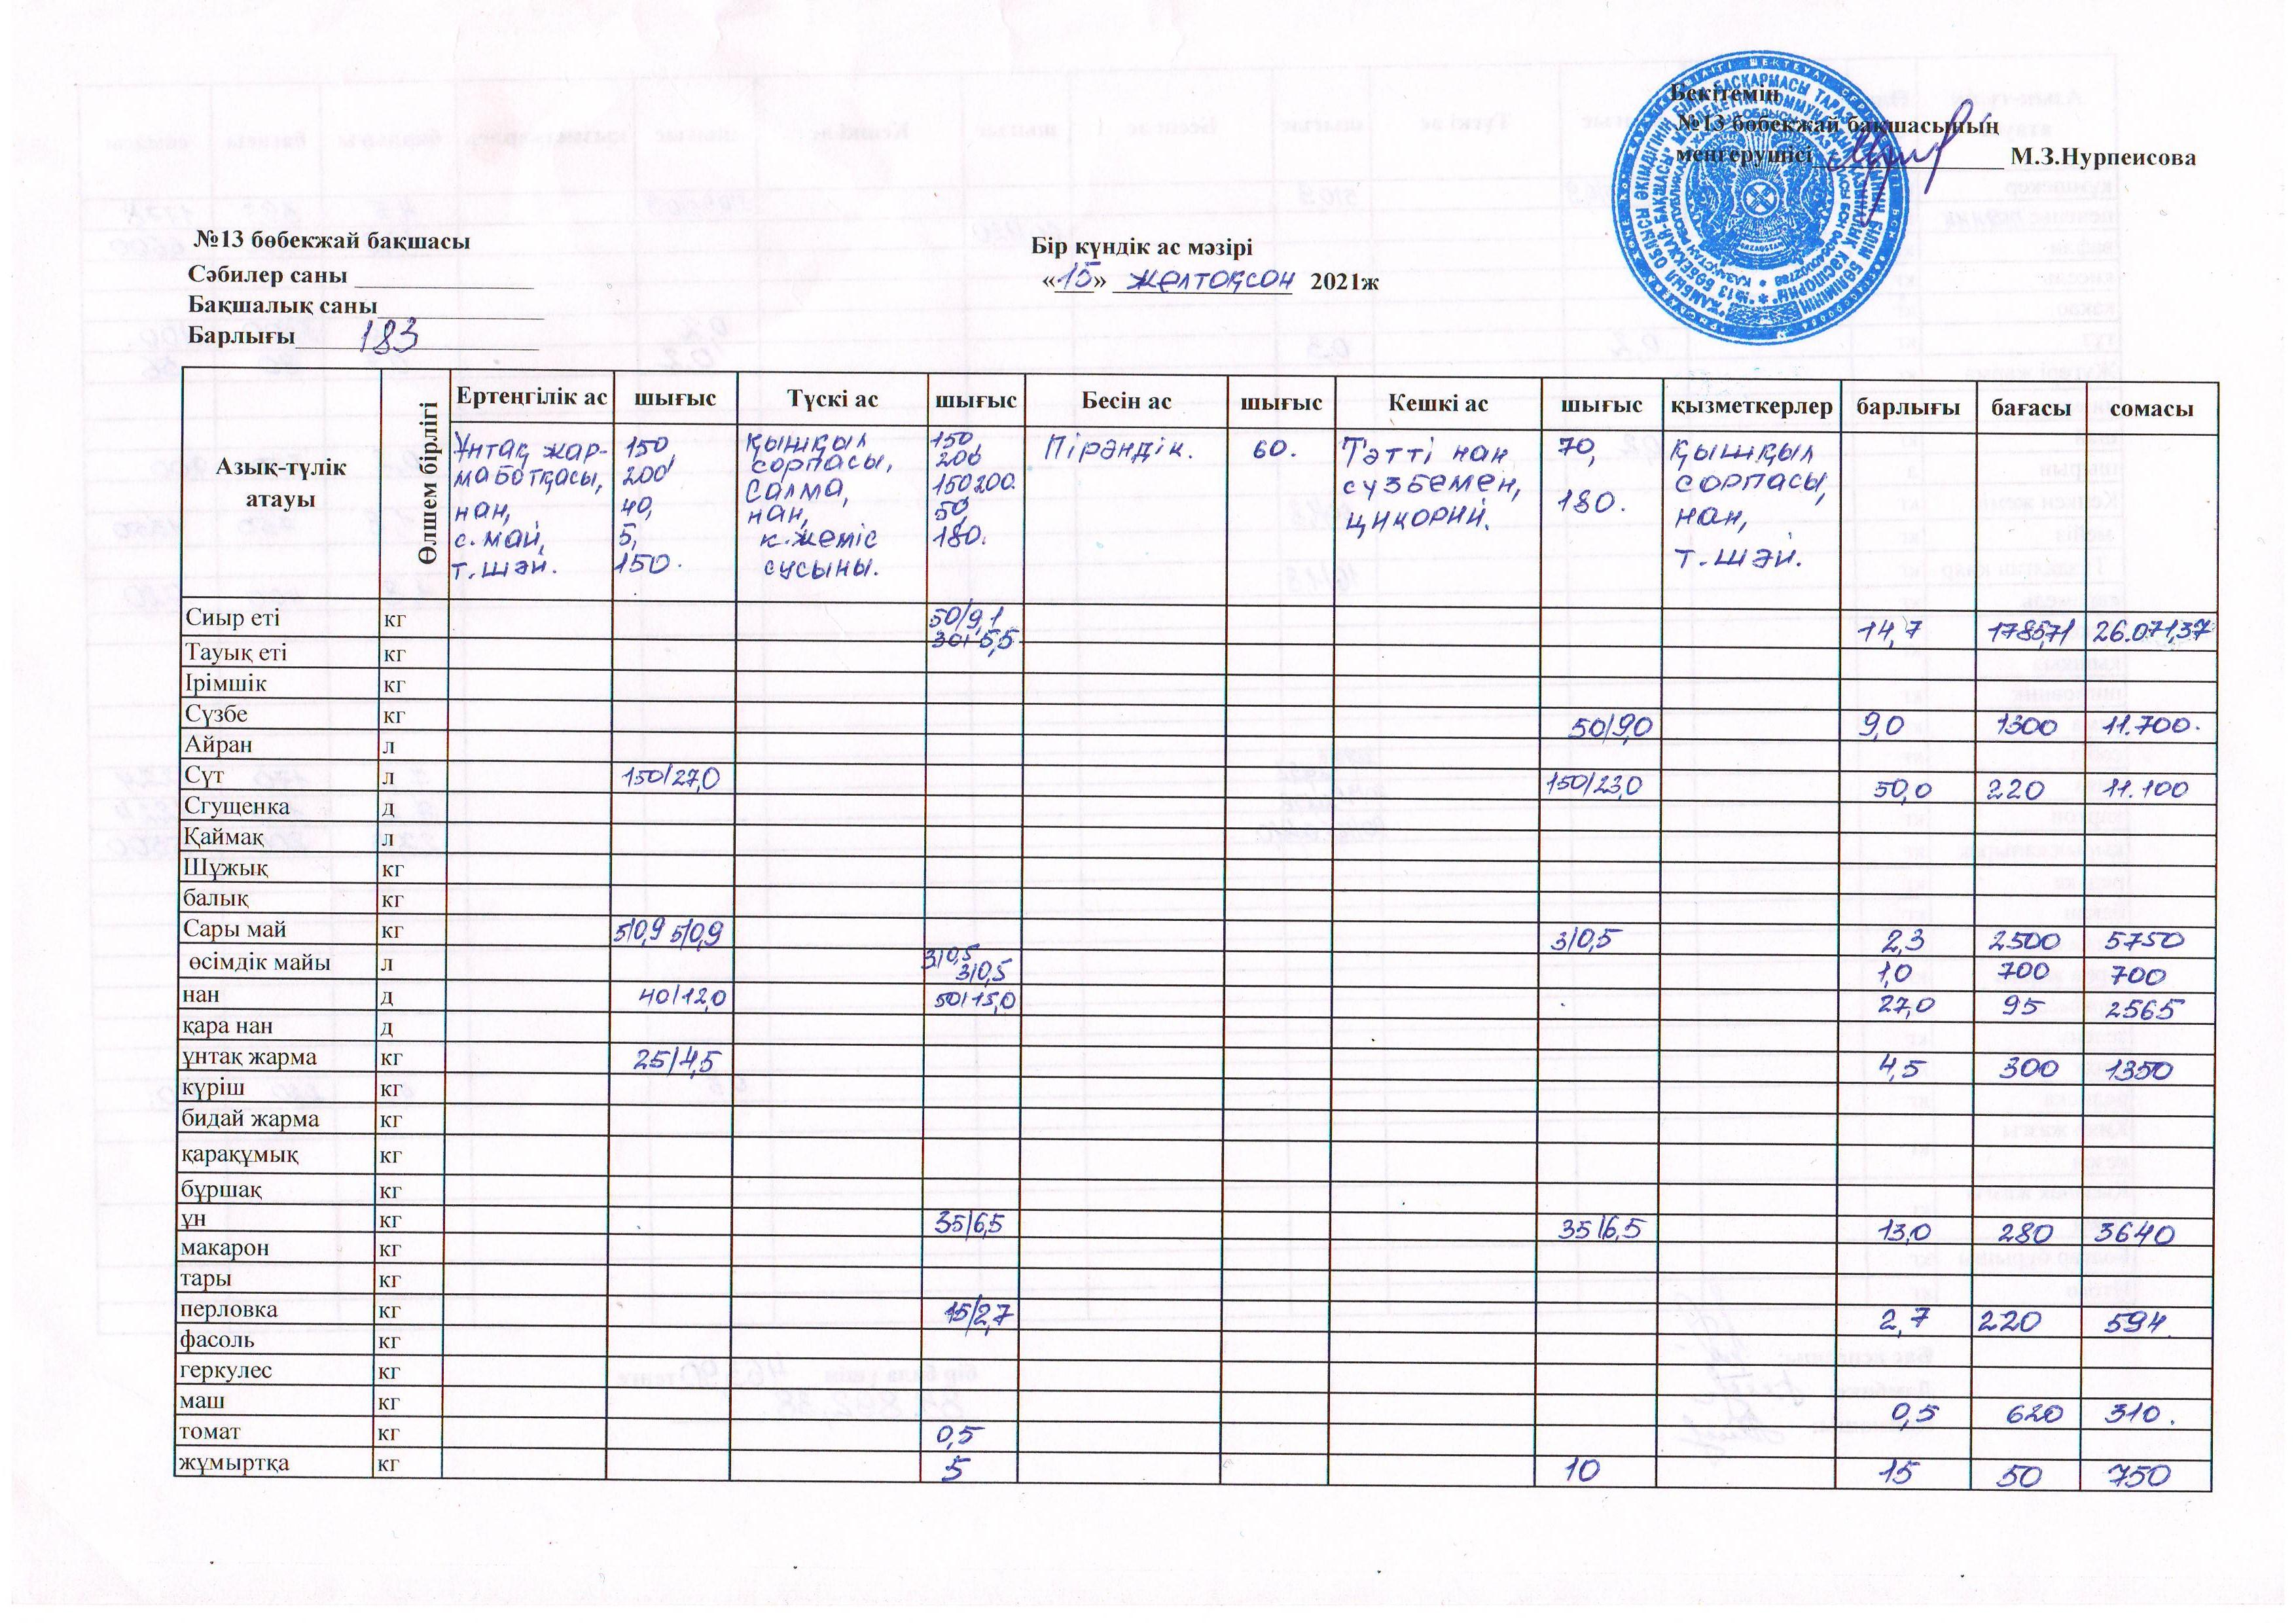 Бекітемін
№13 бөбекжай бақшасының
меңгерушісі М.З.Нурпеисова
№13 бөбекжай бақшасы
Сәбилер саны
Бақшалық саны
Барлығы 183
Бір күндік ас мәзірі
«15» желтоқсан 2021ж
Азық-түлік атауы Өлшем бірлігі Ертеңгілік ас шығыс Түскі ас шығыс Бесін ас шығыс Кешкі ас шығыс қызметкерлер барлығы бағасы сомасы
Ұнтақ жар- 150, Қышқыл 150, Пірәндік. 60. Тәтті нан 70, Қышқыл
маботқасы, 200 сорпасы, 200 сүзбемен, 180. сорпасы,
нан, 40, Салма, 150 200. цикорий. нан,
с. май, 5, нан, 50, т. шәй.
т. шәй. 150. к. жеміс 180.
сусыны.
Сиыр еті кг 50/9,1 14,7 1785,71 26.071,37
30/5,5
Тауық еті кг
Ірімшік кг
Сүзбе кг 50/9,0 9,0 1300 11.700.
Айран л
Сүт л 150/27,0 150/23,0 50,0 220 11.100
Сгущенка д
Қаймақ л
Шұжық кг
балық кг
Сары май кг 5/0,9 5/0,9 3/0,5 2,3 2500 5750
өсімдік майы л 3/0,5 3/0,5 1,0 700 700
нан д 40/12,0 50/15,0 27,0 95 2565
қара нан д
ұнтақ жарма кг 25/4,5 4,5 300 1350
күріш кг
бидай жарма кг
қарақұмық кг
бұршақ кг
ұн кг 35/6,5 35/6,5 13,0 280 3640
макарон кг
тары кг
перловка кг 15/2,7 2,7 220 594
фасоль кг
геркулес кг
маш кг 0,5 620 310.
томат кг 0,5
жұмыртқа кг 5 10 15 50 750